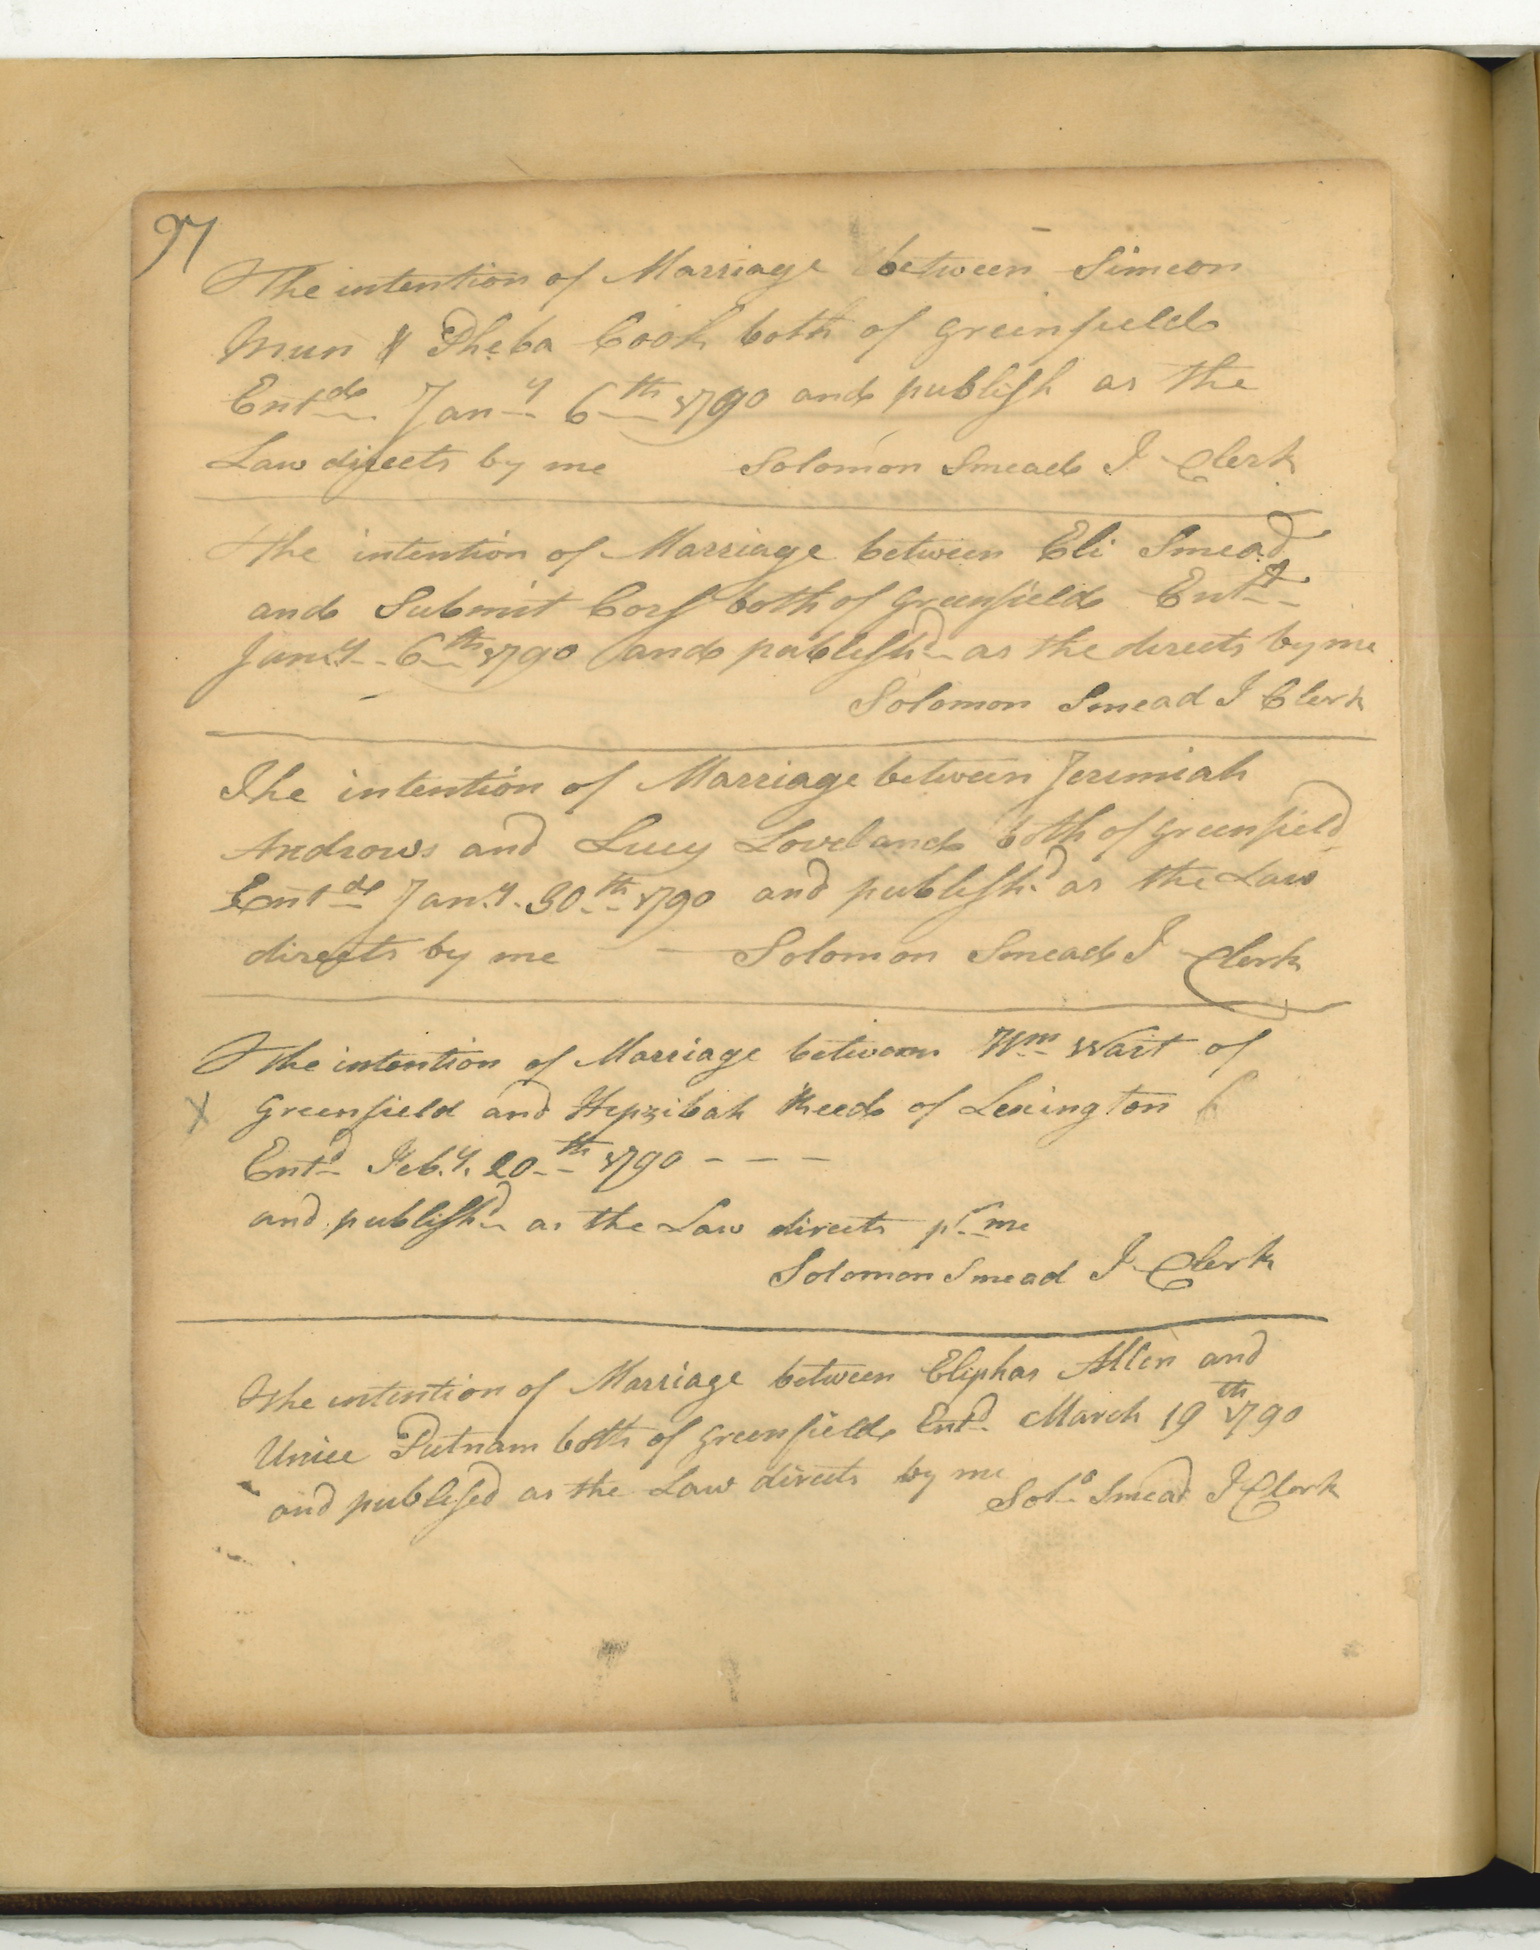 97
The intention of Marriage between Simeon
Mun & Pheba Cook both of Greenfield
Entd Jany 6th 1790 and publish as the
Law directs by me Solomon Smead T Clerk
The intention of Marriage between Eli Smead
and Submit Cors both of Greenfield Entd
Jany 6th 1790 and publishd as the directs by me
Solomon Smead T Clerk
The intention of Marriage between Jeremiah
Androws and Lucy Loveland both of Greenfield
Entd Jany 30th 1790 and publishd as the Law
directs by me Solomon Smead T Clerk
The intention of Marriage between Wm Wait of
X Greenfield and Hepzibah Reed of Lexington
Entd Feby 20th 1790 - - -
and publishd as the Law directs pr me
Solomon Smead T Clerk
The intention of Marriage between Eliphas Allen and
Unice Putnam both of Greenfield Entd March 19th 1790
and publised as the Law directs by me Solo Smead T Clerk